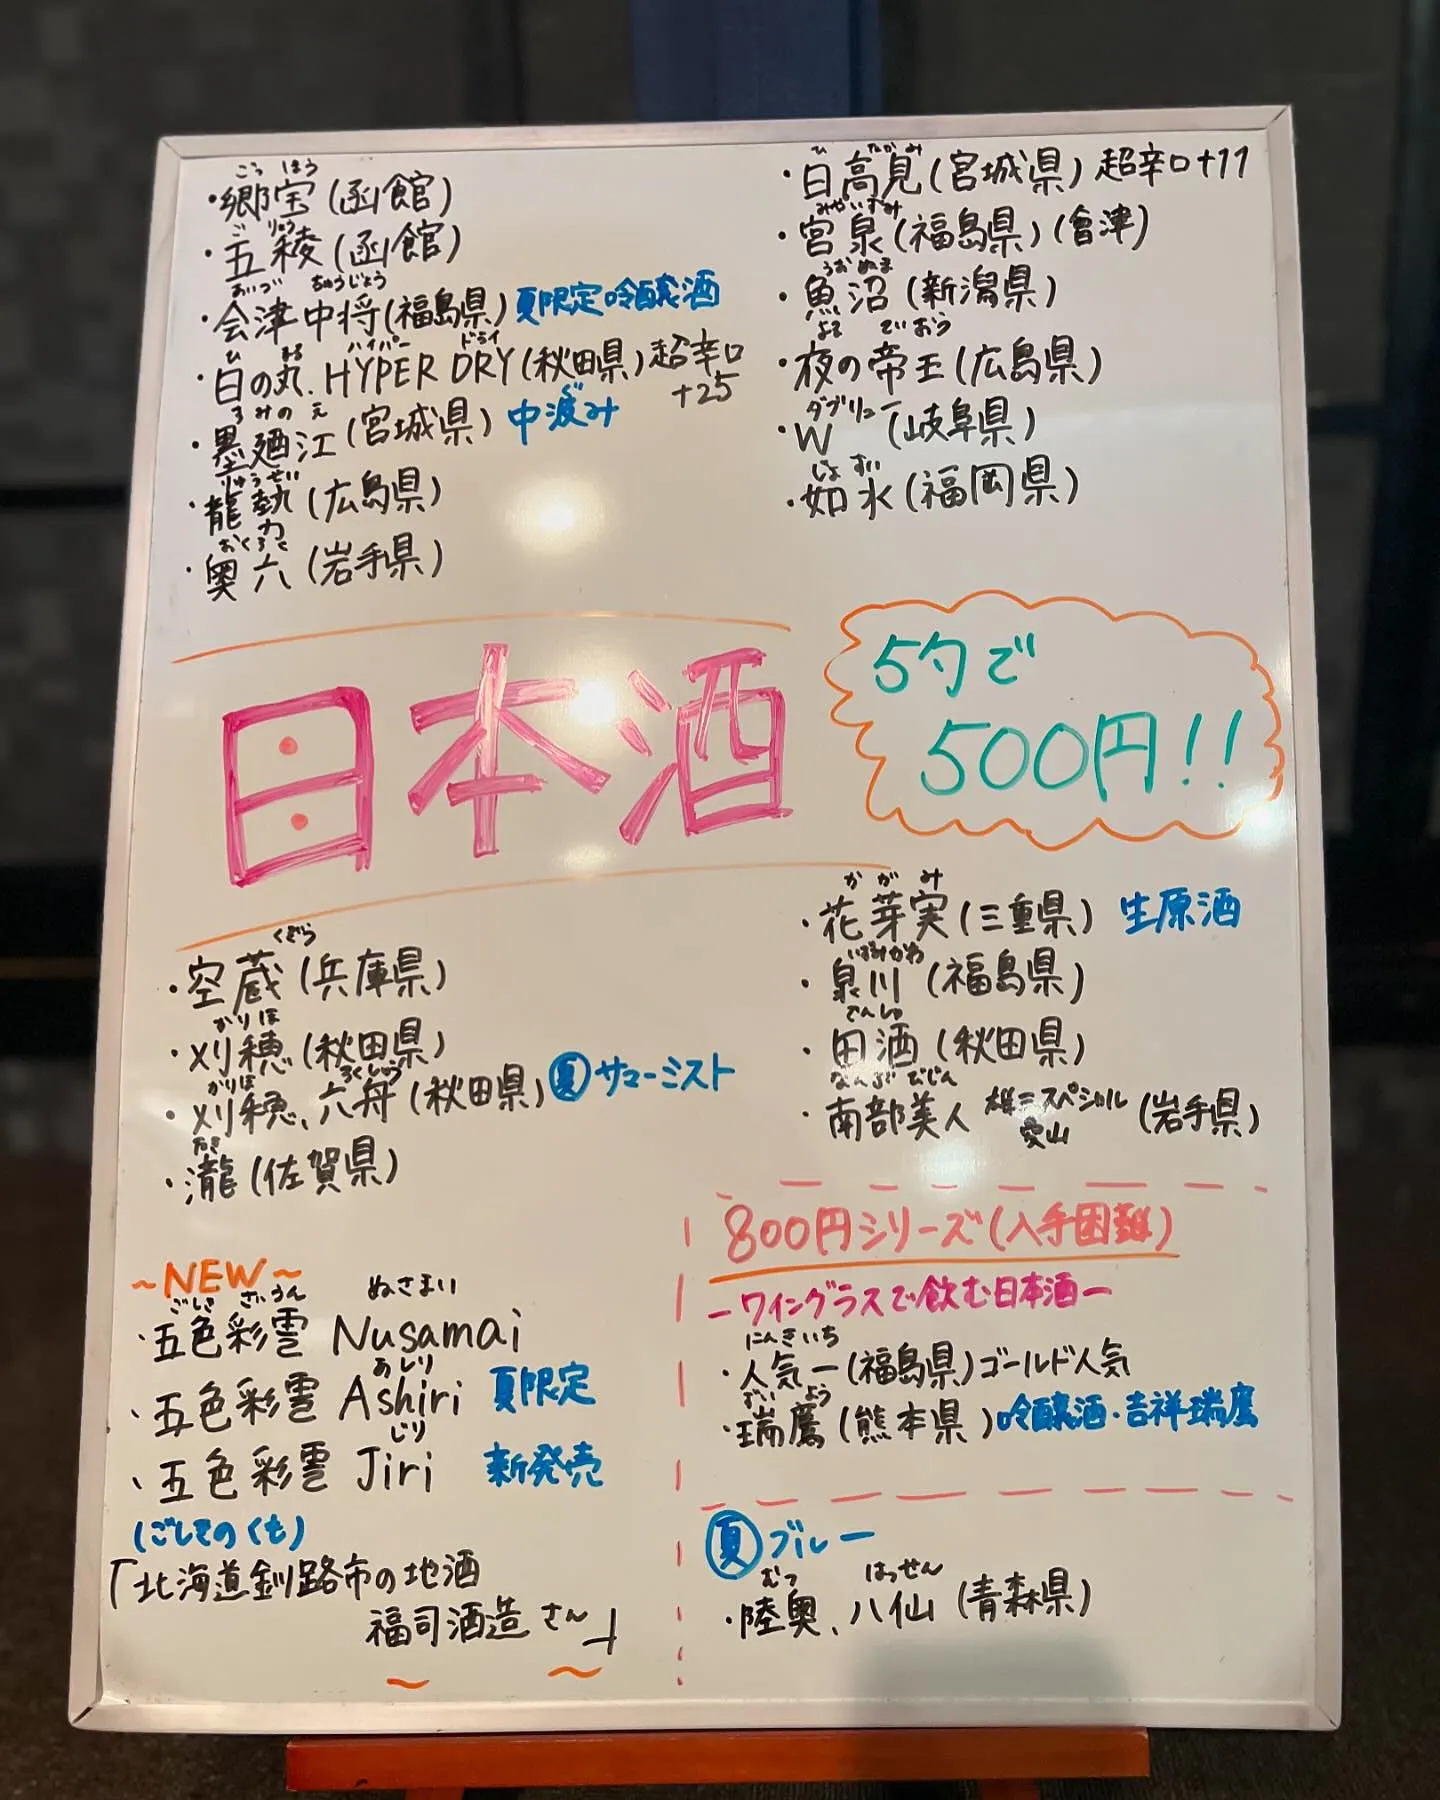 ごっ ほう
・郷宝(函館)
ご りょう
・五稜(函館)
あいづ ちゅうじょう
・会津中将(福島県)夏限定吟醸酒
ひ まる ハイパー ドライ
・日の丸、HYPER DRY(秋田県)超辛口
+25
すみのえ
・墨廼江(宮城県)中汲み
りゅうせい
・龍勢(広島県)
おくろく
・奥六(岩手県)
ひ たかみ
・日高見(宮城県)超辛口+11
みやいずみ
・宮泉(福島県)(會津)
うおぬま
・魚沼(新潟県)
よる ていおう
・夜の帝王(広島県)
ダブリュー
・W (岐阜県)
じょすい
・如水(福岡県)
日本酒
5勺で
500円!!
くぞう
・空蔵(兵庫県)
かりほ
・刈穂(秋田県)
かりほ ろくしゅう
・刈穂、六舟(秋田県)夏サマーミスト
たき
・瀧(佐賀県)
か が み
・花芽実(三重県) 生原酒
いずみかわ
・泉川(福島県)
でんしゅ
・田酒(秋田県)
なんぶびじん
・南部美人 スペシャル(岩手県)
愛山
~NEW~
ごしき さいうん ぬさまい
・五色彩雲 Nusamai
あしり
・五色彩雲 Ashiri 夏限定
じり
・五色彩雲 Jiri 新発売
(ごしきのくも)
「北海道釧路市の地酒
福司酒造さん」
800円シリーズ(入手困難)
ーワイングラスで飲む日本酒ー
にんきいち
・人気一(福島県)ゴールド人気
ずいよう
・瑞鷹(熊本県)吟醸酒・吉祥瑞鷹
夏ブルー
むつ はっせん
・陸奥、八仙(青森県)